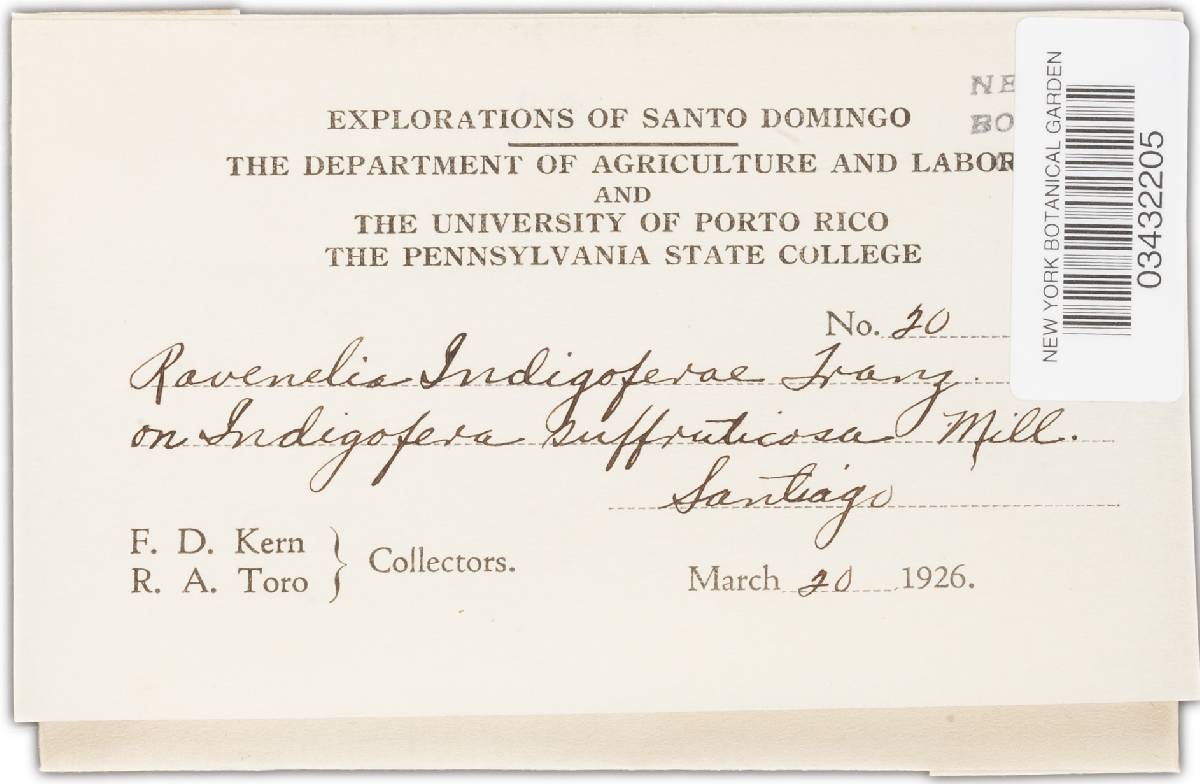 EXPLORATIONS OF SANTO DOMINGO
THE DEPARTMENT OF AGRICULTURE AND LABOR
AND
THE UNIVERSITY OF PORTO RICO
THE PENNSYLVANIA STATE COLLEGE
No. 20
Ravenelia Indigoferae Tranz.
on Indigofera suffruticosa Mill.
Santiago
F. D. Kern
R. A. Toro
Collectors.
March 20 1926.
NE
BO
NEW YORK BOTANICAL GARDEN
03432205